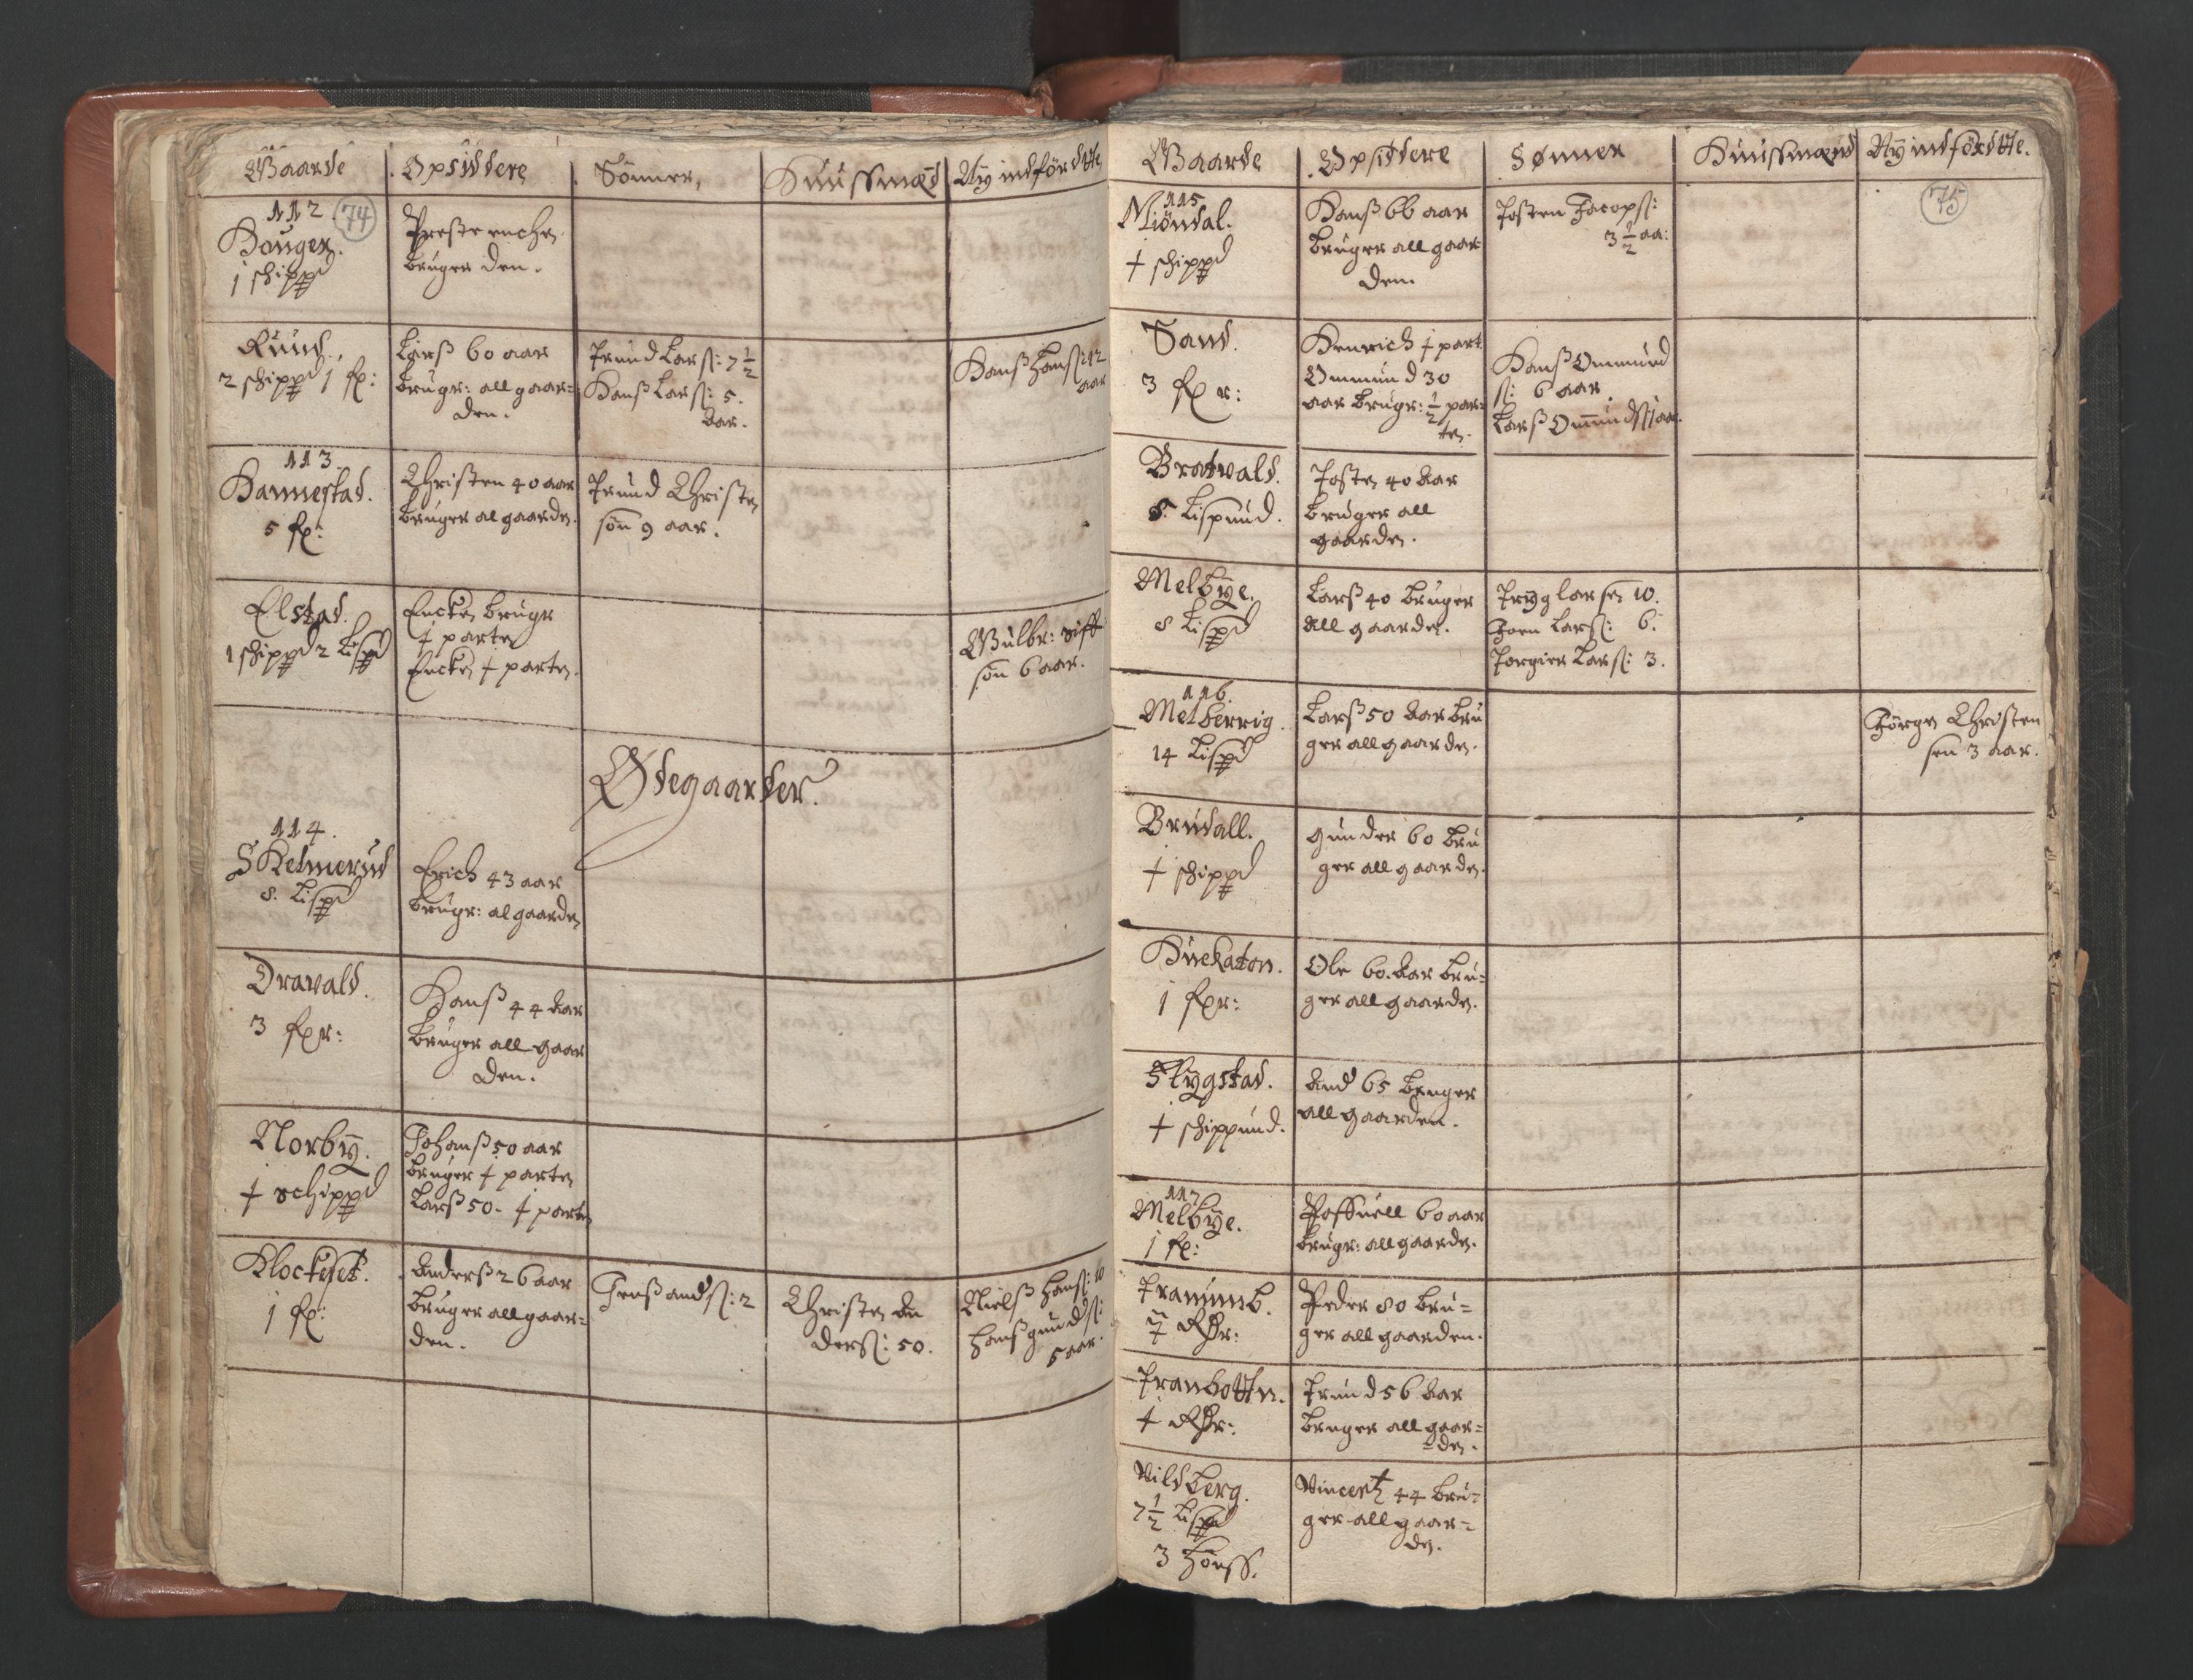 Gaarde Opsiddere Sönner, Huussmæd Ny indfördtte
112 74
Houger.
1 schippd
Presteenchen
bruger den.
Ruud.
2 schippd 1 fr:
Larss 60 aar
brugr: all gaar=
den.
Trund Larss: 7½
Hanss Larss: 5.
aar.
Hanss Hanss: 12
aar
113.
Hannestad.
5 fr:
Christen 40 aar
bruger al gaarden.
Trund Christen
sön 9 aar.
Elstad.
1 schippd 2 Lispd
Encken brugr
½ parten
Encken ½ parten.
Gulbr:
sön 6 aar.
Ødegaarder.
114.
SKelmerud
8. Lispd
Erich 43 aar
brugr: al gaarden
Dravald.
3 fr:
Hanss 44 aar
bruger all gaar
den.
Norbÿ.
½ schippd
Johanss 50 aar
bruger ½ parten
Larss 50. ½ parten
Klockeset.
1 fr:
Anderss 26 aar
bruger all gaar=
den.
Jenss andss: 2
Christen An
derss: 50.
Nielss Hanss: 10
Hanss gundss:
5 aar.
Gaarde Opsittere Sønner Huussmænd Nÿ indfördtte.
75
115
Miöndal.
½ schippd
Hanss 66 aar
bruger all gaar
den.
Josten Jacopss:
3½ aa:
Sand.
3 fr:
Henrich ½ part.
Ommund 30
aar brugr: ½ par=
ten.
Hanss Ommund
ss: 6 aar.
Larss Ommundss 1 aar.
Bratvald.
8. Lispund.
Josten 40 aar
bruger all
gaarden.
Melbÿe.
8 Lispd
Larss 40 bruger
all gaarden.
Tryg larsen 10.
Joen Larss: 6.
Torgier Larss: 3.
116.
Melberrig.
14 Lispd
Larss 50 aar bru
ger all gaarden.
Jörgen Christen
sen 3 aar.
Brudall.
½ schippd
Gunder 60 bru
ger all gaarden.
Huckaton.
1 fr:
Ole 60. aar bru=
ger all gaarden.
Flÿgstad.
½ schippund.
And 65 bruger
all gaarden.
117
Melbÿe.
1 fr:
Poffuell 60 aar
brugr: all gaarden.
Tranumb.
Peder 80 bru=
ger all gaarden.
Tranbotten.
Trund 56 aar
bruger all gaar=
=den.
Vildberg.
7½ Lispd
3 Hönss.
Vincentz 44 bru=
ger all gaar=
den.